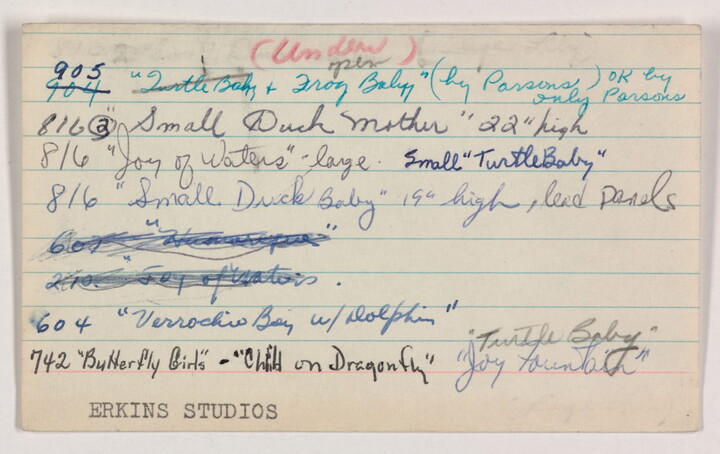 (Under)
open
905
904 "Turtle Baby + Frog Baby" (by Parsons) OK by
only Parsons
816 ② "Small Duck Mother" 22" high
816 "Joy of Waters" - large. Small "Turtle Baby"
816 "Small Duck Baby" 19" high, lead panels
601 "Humoresque"
270 "Joy of Waters.
604 "Verrochio Boy w/ Dolphin"
"Turtle Baby"
742 "Butterfly Girls" - "Child on Dragonfly" "Joy Fountain"
ERKINS STUDIOS